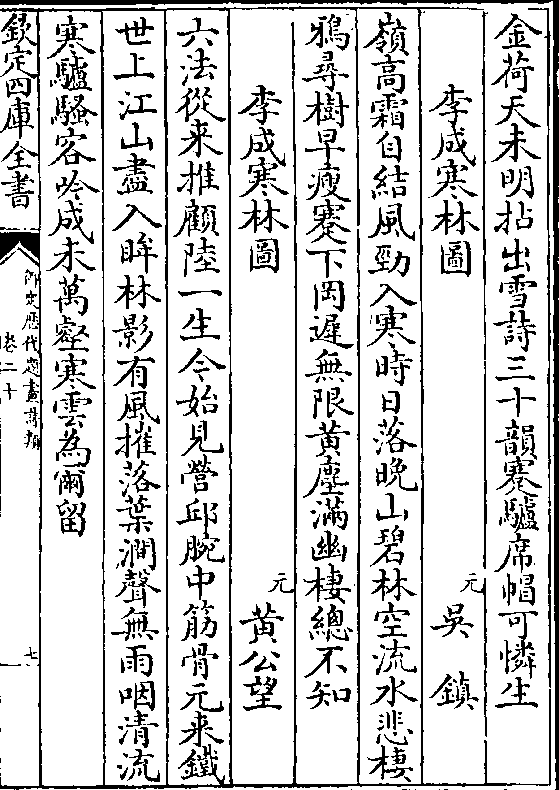 金荷天未明拈出雪詩三十韻蹇驢席帽可憐生
李成寒林圖　元　吳鎮
嶺高霜自結風勁入寒時日落晩山碧林空流水悲棲
鴉尋樹早瘦蹇下岡遲無限黄塵滿幽棲總不知
李成寒林圖　元　黄公望
六法從来推顧陸一生今始見營邱腕中筋骨元来鐵
世上江山盡入眸林影有風摧落葉澗聲無雨咽清流
寒驢騷客吟成未萬壑寒雲為爾留
欽定四庫全書
御定歷代題畫詩類
卷二十
七